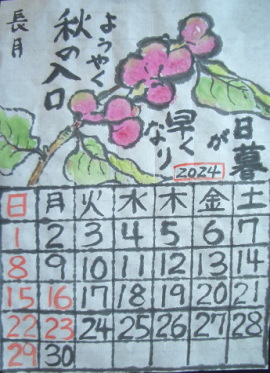 日暮
が
早く
なり
ようやく
秋の入口
長月
2024
日 月 火 水 木 金 土
1 2 3 4 5 6 7
8 9 10 11 12 13 14
15 16 17 18 19 20 21
22 23 24 25 26 27 28
29 30